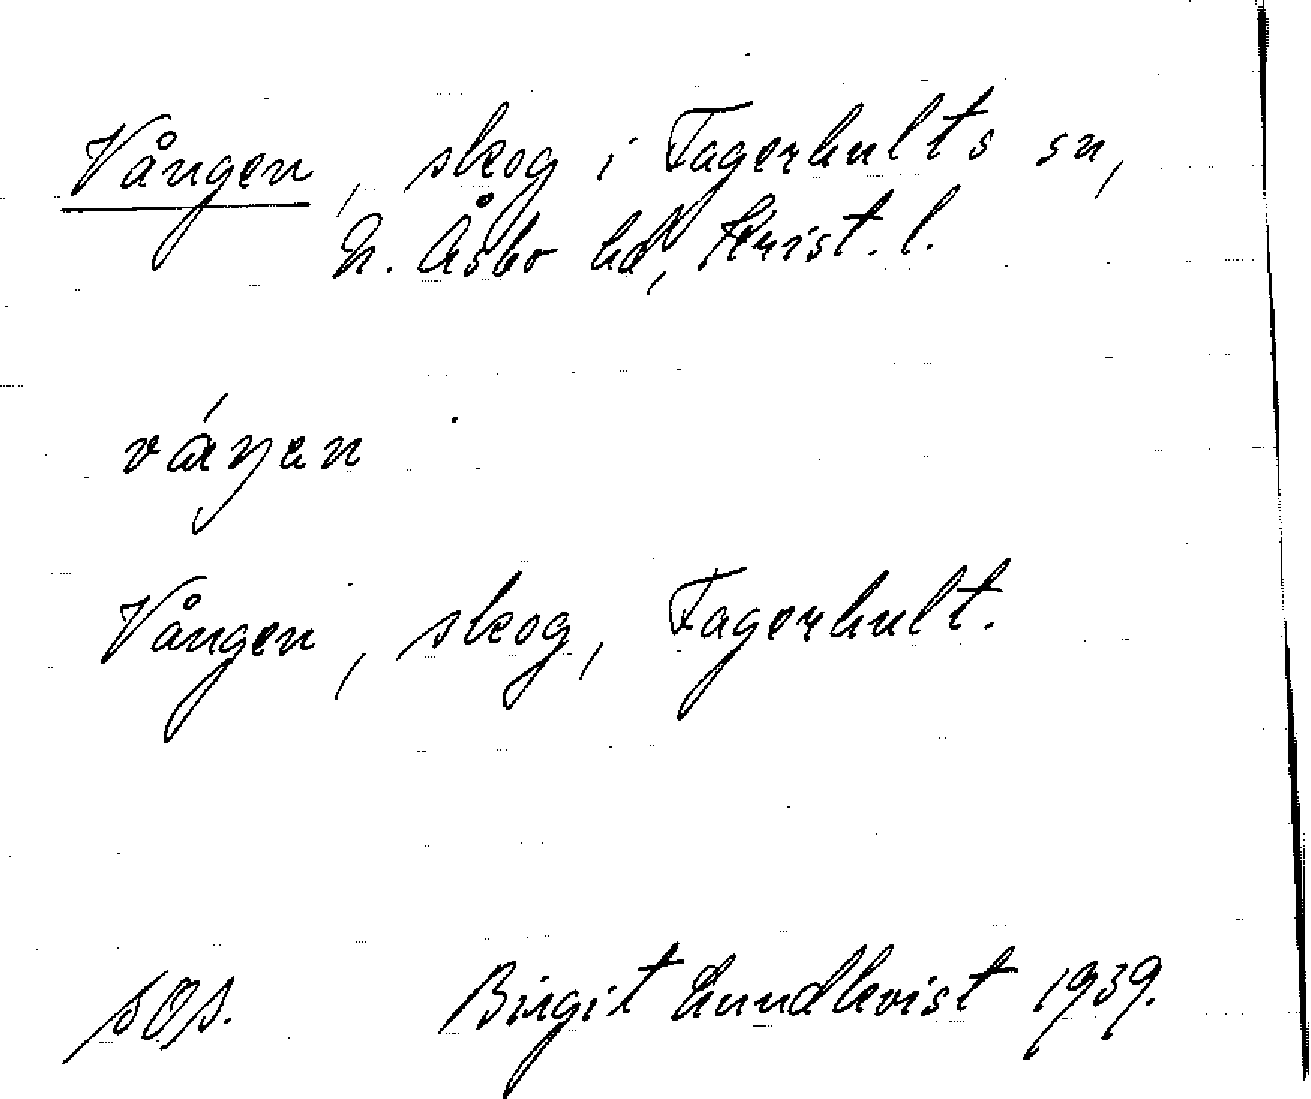 Vången, skog i Fagerhults sn,
N. Åsbo hd, Krist. l.
váŋen
Vången, skog, Fagerhult.
sOs. Birgit Lundkvist 1939.